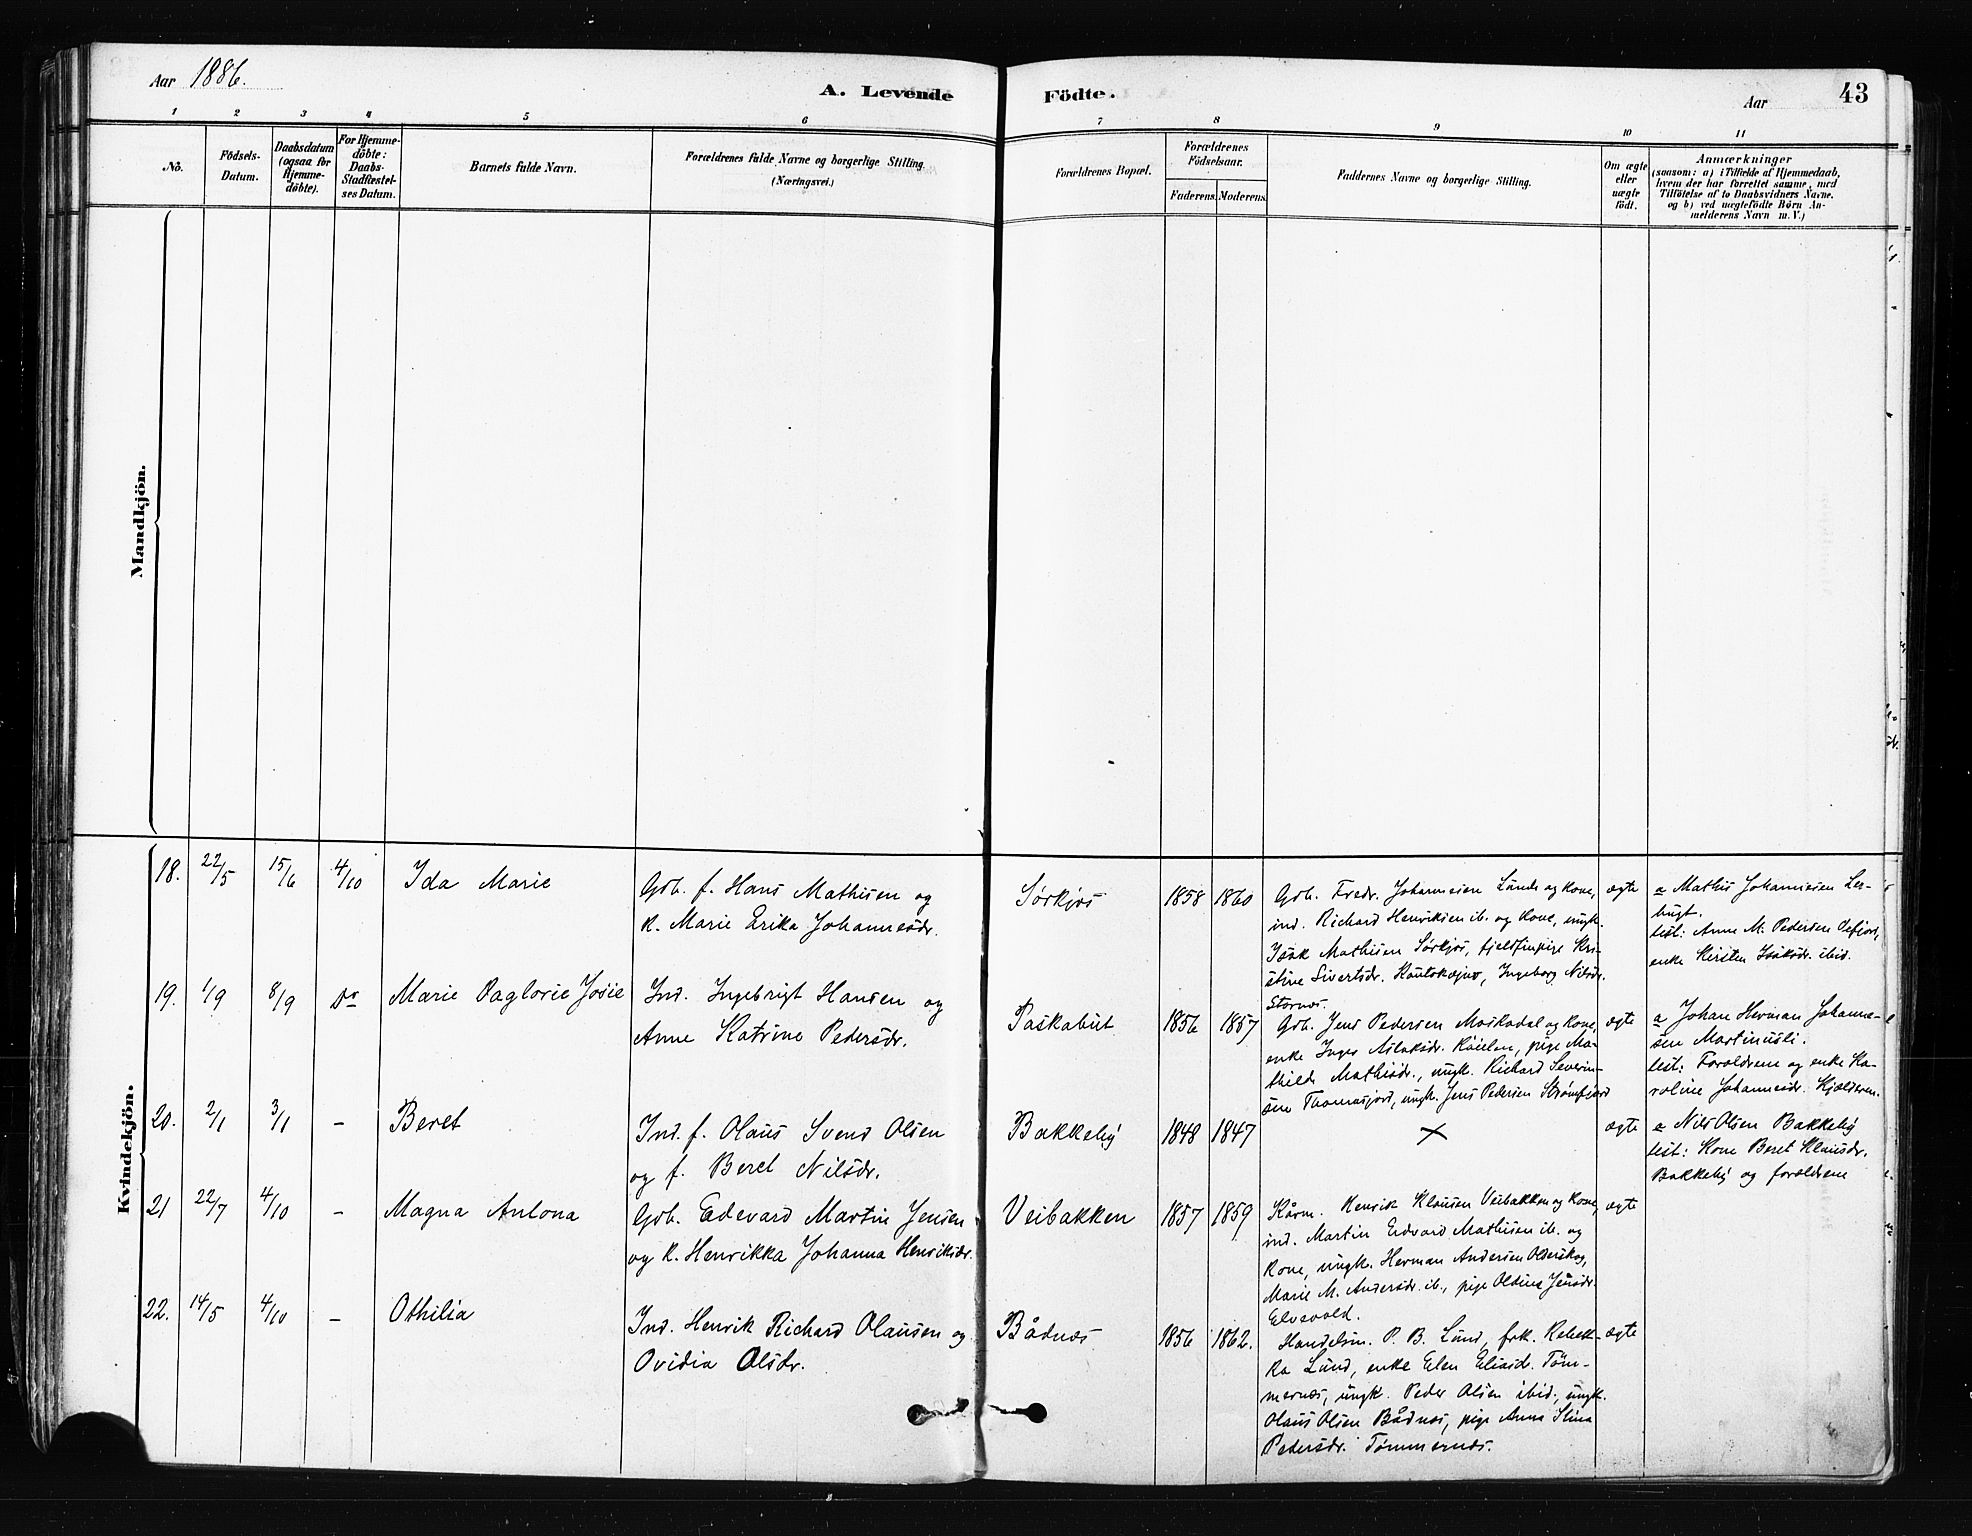 Aar 1886.
A. Levende Födte.
Aar
43
1 2 3 4 5 6 7 8 9 10 11
No.
Födsels-
Datum.
Daabsdatum
(ogsaa for
Hjemme-
döbte).
For Hjemme-
döbte:
Daabs-
Stadfæstel-
ses Datum.
Barnets fulde Navn.
Forældrenes fulde Navne og borgerlige Stilling
(Næringsvei.)
Forældrenes Bopæl.
Forældrenes
Födselsaar.
Faderens. Moderens.
Faddernes Navne og borgerlige Stilling.
Om ægte
eller
uægte
födt.
Anmærkninger
(saasom: a) i Tilfælde af Hjemmedaab,
hvem der har forrettet samme, med
Tilföielse af to Daabsvidners Navne.
og b) ved uægtefödte Börn An-
melderens Navn m. V.)
Mandkjön.
Kvindekjön.
18. 22/5 15/6 4/10 Ida Marie
Gdb. f. Hans Mathisen og
k. Marie Erika Johannesdr.
Sørkjos 1858 1860
Gdb. Fredr. Johannesen Lund og kone,
ind. Richard Henriksen ib. og kone, ungk.
Isak Mathisen Sørkjos, fjeldfinpige Kri-
stine Sivertsdr. Koutokæjno, Ingeborg Nilsdr.
Stornes.
ægte
a Mathis Johannesen Ler-
bugt.
test: Anne M. Pedersen Oxfjord,
enke Kirsten Isaksdr. ibid.
19. 1/9 8/9 do Marie Paglorie Josie
Ind. Ingebrigt Hansen og
Anne Katrine Pedersdr.
Paskabut 1856 1857
Gdb. Jens Pedersen Moskodal og kone,
enke Inger Aslaksdr. pige Ma-
thilde Mathisdr., ungk. Richard Severin-
sen Thomasjord, ungk. Jens Pedersen Strømfjord
ægte
a Johan Herman Johanne-
sen Martinusli.
test: Forældrene og enke Ka-
roline Johannesdr. Kjælderen.
20. 2/1 3/1 – Beret
Ind. f. Olaus Svend Olsen
og f. Beret Nilsdr.
Bakkeby 1848 1847
×
ægte
a Nils Olsen Bakkeby
test: Kone Beret Klausdr.
Bakkeby og forældrene
21 22/7 4/10 – Magna Antona
Gdb. Edevard Martin Jensen
og k. Henrikka Johanna Henriksdr.
Veibakken 1857 1859
Kårm. Henrik Klausen Veibakken og kone,
ind. Martin Edvard Mathisen ib. og
kone, ungk. Herman Andersen Olderskog,
Marie M. Andersdr. ib., pige Oldina Jensdr.
Elvevold.
ægte
22. 14/5 4/10 – Othilia
Ind. Henrik Richard Olausen og
Ovidia Olsdr.
Bådnes 1856 1862.
Handelsm. P. B. Lund, frk. Rebek-
ka Lund, enke Elen Eliasd. Tøm-
mernes, ungk. Peder Olsen ibid., ungk.
Olaus Olsen Bådnes, pige Anna Stina
Pedersdr. Tømmernes.
ægte